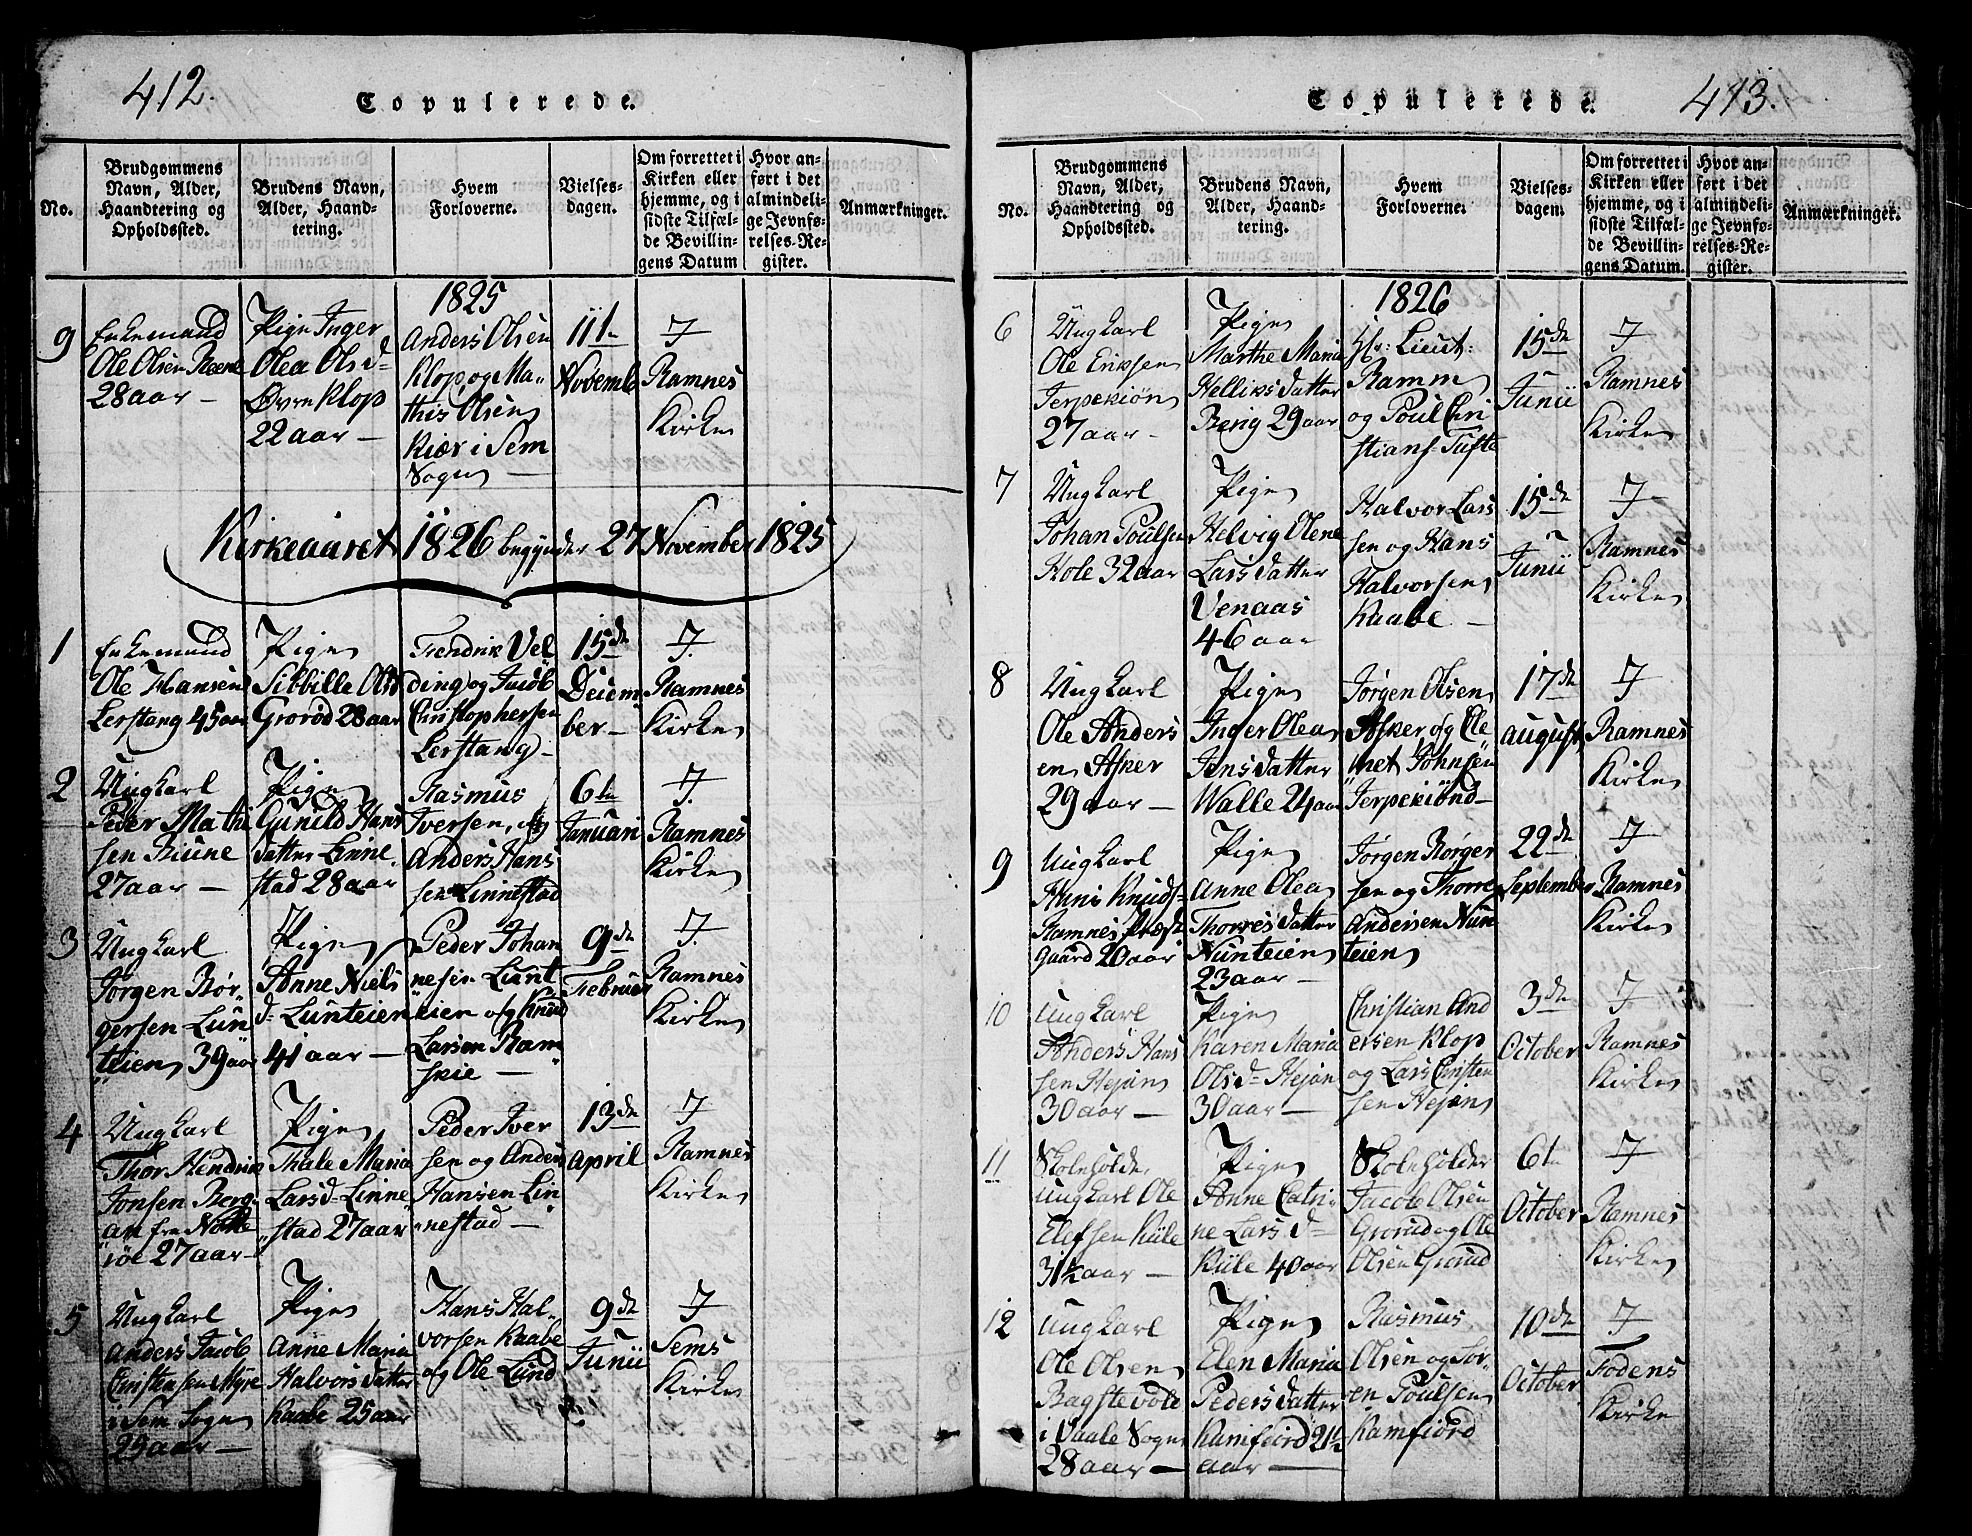 412.
Copulerede.
No.
Brudgommens
Navn, Alder,
Haandtering og
Opholdssted.
Brudens Navn,
Alder, Haand-
tering.
Hvem
Forloverne.
Vielses-
dagen.
Om forrettet i
Kirken eller
hjemme, og i
sidste Tilfæl-
de Bevillin-
gens Datum
Hvor an-
ført i det
almindeli-
ge Jevnfø-
relses-Re-
gister.
Anmærkninger.
1825
9
Enkemand
Ole Olsen
28 aar
Pige Inger
Olea Olsd
Øvre Klop
22 aar
Anders Olsen
Klop og Ma
this Olsen
Kiær i Sem
Sogn
11te
Novemb
I
Ramnes
Kirke
Kirkeaaret 1826 begynder 27 November 1825
1
Enkemand
Ole Hansen
Lerstang 45 aar
Pige
Sibbille Olsd
Grorød 28 aar
Fredrik Vel
ding og Jacob
Christophersen
Lerstang
15de
Decem
ber
I
Ramnes
Kirke
2
Ungkarl
Peder Mathi
sen Biune
27 aar
Pige
Gunild Hans
datter Linne
stad 28 aar
Rasmus
Iversen, og
Anders Hans
sen Linnestad
6te
Januari
I
Ramnes
Kirke
3
Ungkarl
Jørgen Bør
gersen Lun
teien 39 aar
Pige
Anne Niels
d Lunteien
41 aar
Peder Johan
nesen Lunt
eien og Knud
Larsen Ram
skie
9de
Februar
I
Ramnes
Kirke
4
Ungkarl
Thor Hendrik
Jonsen Berg
an fra Nøtte
røe 27 aar
Pige
Thale Maria
Larsd Linne
stad 27 aar
Peder Iver
sen og Anders
Hansen Lin
nestad
13de
April
I
Ramnes
Kirke
5
Ungkarl
Anders Jacob
Christensen Myre
i Sem Sogn
29 aar
Pige
Anne Maria
Halvorsdatter
Kaabe 25 aar
Hans Hal
vorsen Kaabe
og Ole Lund
9de
Junii
I
Sems
Kirke
413.
Copulerede.
No.
Brudgommens
Navn, Alder,
Haandtering og
Opholdssted.
Brudens Navn,
Alder, Haand-
tering.
Hvem
Forloverne.
Vielses-
dagen.
Om forrettet i
Kirken eller
hjemme, og i
sidste Tilfæl-
de Bevillin-
gens Datum.
Hvor an-
ført i det
almindeli-
ge Jevnfø-
relses-Re-
gister.
Anmærkninger.
1826
6
Ungkarl
Ole Eriksen
Jerpekiøn
27 aar
Pige
Marthe Maria
Helliksdatter
Berig 29 aar
Hr: Lieut:
Ramm
og Poul Cri
stians Tufte
15de
Junii
I
Ramnes
Kirke
7
Ungkarl
Johan Poulsen
Hole 32 aar
Pige
Helvig Olene
Larsdatter
Venaas
46 aar
Halvor Lars
sen og Hans
Halvorsen
Kaabe
15de
Junii
I
Ramnes
Kirke
8
Ungkarl
Ole Anders
en Asker
29 aar
Pige
Inger Olea
Jensdatter
Walle 24 aar
Jørgen Olsen
Asker og Cle
met Johnsen
Jerpekiønd
17de
August
I
Ramnes
Kirke
9
Ungkarl
Hans Knuds
Ramnes Præst
gaard 20 aar
Pige
Anne Olea
Thorresdatter
Nunteien
23 aar
Jørgen Børger
sen og Thorre
Andersen Nun
teien
22de
September
I
Ramnes
Kirke
10
Ungkarl
Anders Hans
sen Hejan
30 aar
Pige
Karen Maria
Olsd Hejan
30 aar
Christian And
ersen Klop
og Lars Christen
sen Hejan
3de
October
I
Ramnes
Kirke
11
Skoleholder
Ungkarl Ole
Elefsen Kiile
31½ aar
Pige
Anne Catri
ne Lars d
Kiile 40 aar
Skoleholder
Jacob Olsen
Grorud og Ole
Olsen Grorud
6te
October
I
Ramnes
Kirke
12
Ungkarl
Ole Olsen
Bagstevold
i Vaale Sogn
28 aar
Pige
Elen Maria
Pedersdatter
Kamfiord 21½
aar
Rasmus
Olsen og Sør
en Poulsen
Kamfiord
10de
October
I
Fodens
Kirke